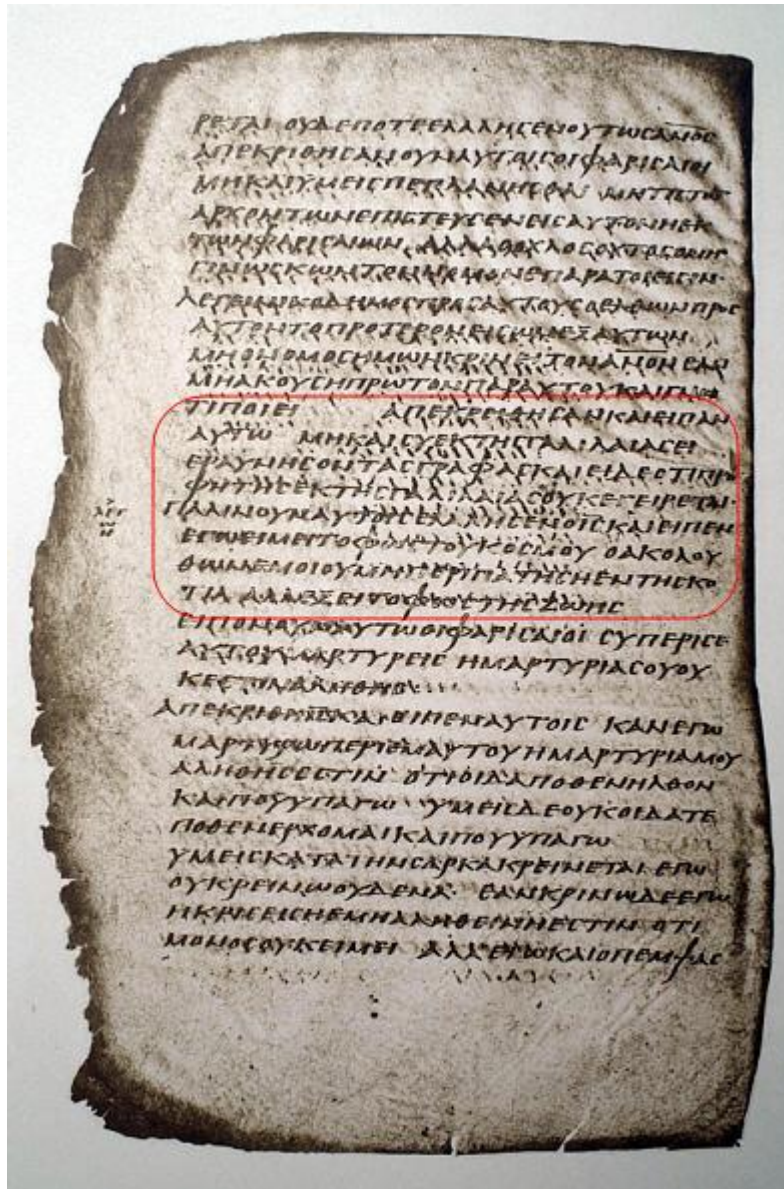 ΡΕΤΑΙ ΟΥΔΕΠΟΤΕΕΛΑΛΗϹΕΝΟΥΤΩϹΑΝΟϹ
ΑΠΕΚΡΙΘΗϹΑΝΟΥΝΑΥΤΟΙϹΟΙΦΑΡΙϹΑΙΟΙ
ΜΗΚΑΙΥΜΕΙϹΠΕΠΛΑΝΗϹΘΑΙ ΜΗΤΙϹΤΩΝ
ΑΡΧΟΝΤΩΝΕΠΙϹΤΕΥϹΕΝΕΙϹΑΥΤΟΝΗΕΚ
ΤΩΝΦΑΡΙϹΑΙΩΝ ΑΛΛΑΟΟΧΛΟϹΟΥΤΟϹΟΜΗ
ΓΙΝΩϹΚΩΝΤΟΝΝΟΜΟΝΕΠΑΡΑΤΟΙΕΙϹΙΝ·
ΛΕΓΕΙΝΙΚΟΔΗΜΟϹΠΡΟϹΑΥΤΟΥϹΟΕΛΘΩΝΠΡΟϹ
ΑΥΤΟΝΤΟΠΡΟΤΕΡΟΝΕΙϹΩΝΕΞΑΥΤΩΝ
ΜΗΟΝΟΜΟϹΗΜΩΝΚΡΙΝΕΙΤΟΝΑΝΟΝΕΑΝ
ΜΗΑΚΟΥϹΗΠΡΩΤΟΝΠΑΡΑΥΤΟΥΚΑΙΓΝΩ
ΤΙΠΟΙΕΙ ΑΠΕΚΡΕΙΘΗϹΑΝΚΑΙΕΙΠΑΝ
ΑΥΤΩ ΜΗΚΑΙϹΥΕΚΤΗϹΓΑΛΙΛΑΙΑϹΕΙ
ΕΡΑΥΝΗϹΟΝΤΑϹΓΡΑΦΑϹΚΑΙΕΙΔΕΟΤΙΠΡΟ
ΦΗΤΗϹΕΚΤΗϹΓΑΛΙΛΑΙΑϹΟΥΚΕΓΕΙΡΕΤΑΙ·
ΠΑΛΙΝΟΥΝΑΥΤΟΙϹΕΛΑΛΗϹΕΝΟΙϹΚΑΙΕΙΠΕΝ
ΕΓΩΕΙΜΕΙΤΟΦΩϹΤΟΥΚΟϹΜΟΥ ΟΑΚΟΛΟΥ
ΘΩΝΕΜΟΙΟΥΜΗΠΕΡΙΠΑΤΗϹΗΕΝΤΗϹΚΟ
ΤΙΑ ΑΛΛΕΞΕΙΤΟΦΩϹΤΗϹΖΩΗϹ
ΕΙΠΟΝΟΥΝΑΥΤΩΟΙΦΑΡΙϹΑΙΟΙ ϹΥΠΕΡΙϹΕ
ΑΥΤΟΥΜΑΡΤΥΡΕΙϹ ΗΜΑΡΤΥΡΙΑϹΟΥΟΥ
ΚΕϹΤΙΝΑΛΗΘΗϹ
ΑΠΕΚΡΙΘΗΙϹΚΑΙΕΙΠΕΝΑΥΤΟΙϹ ΚΑΝΕΓΩ
ΜΑΡΤΥΡΩΠΕΡΙΕΜΑΥΤΟΥΗΜΑΡΤΥΡΙΑΜΟΥ
ΑΛΗΘΗϹΕϹΤΙΝ ΟΤΙΟΙΔΑΠΟΘΕΝΗΛΘΟΝ
ΚΑΙΠΟΥΥΠΑΓΩ ΥΜΕΙϹΔΕΟΥΚΟΙΔΑΤΕ
ΠΟΘΕΝΕΡΧΟΜΑΙΚΑΙΠΟΥΥΠΑΓΩ
ΥΜΕΙϹΚΑΤΑΤΗΝϹΑΡΚΑΚΡΕΙΝΕΤΑΙ ΕΓΩ
ΟΥΚΡΕΙΝΩΟΥΔΕΝΑ· ΕΑΝΚΡΙΝΩΔΕΕΓΩ
ΗΚΡΙϹΕΙϹΗΕΜΗΑΛΗΘΕΙΝΗΕϹΤΙΝ ΟΤΙ
ΜΟΝΟϹΟΥΚΕΙΜΕΙ ΑΛΛΕΓΩΚΑΙΟΠΕΜΨΑϹ